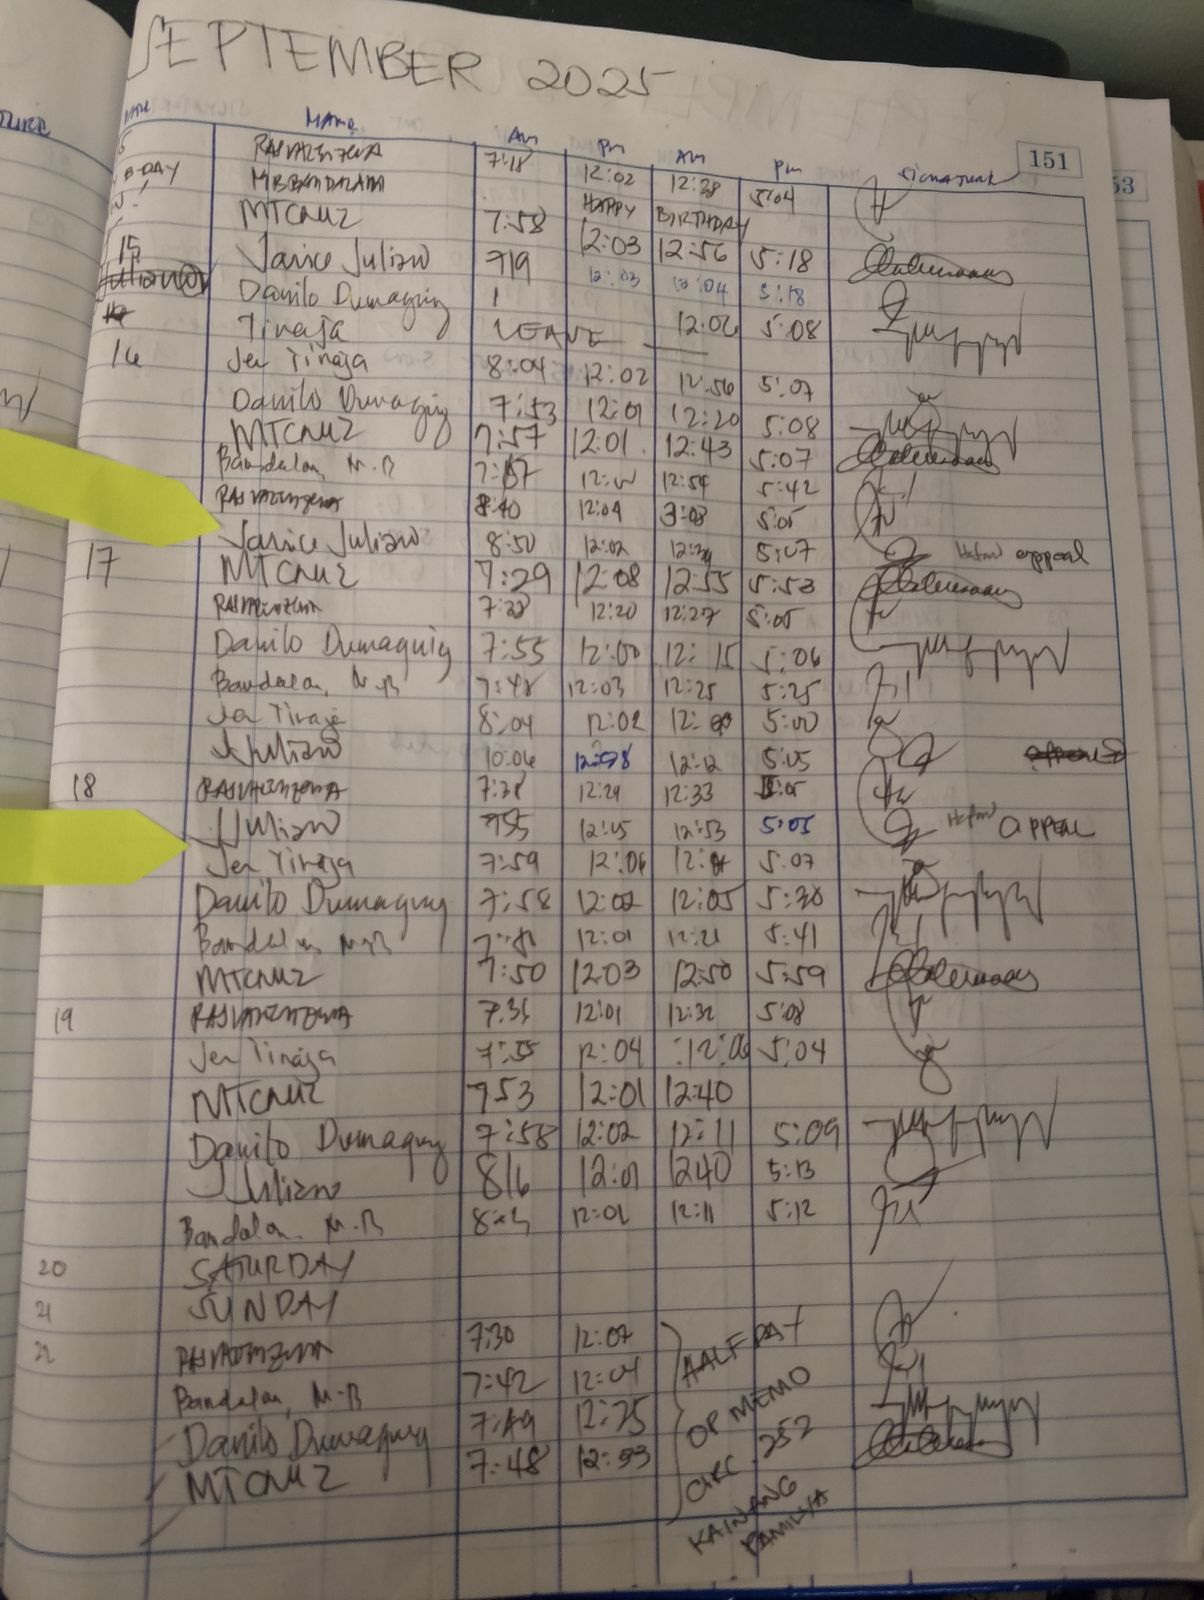 SEPTEMBER 2025
DATE NAME AM PM AM PM SIGNATURE 151
7:18 12:02 12:38 5:04
B-DAY HAPPY BIRTHDAY
MTCRUZ 7:58 12:03 12:56 5:18
15 Janice Juliano 719 12:03 12:04 5:18
Danilo Dumaguig 12:06 5:08
Tinaja LEAVE
16 Jen Tinaja 8:04 12:02 12:56 5:07
Danilo Dumaguig 7:53 12:01 12:20 5:08
MTCRUZ 7:57 12:01 12:43 5:07
Bandalan, M.B 12:54 5:42
8:40 12:04 3:03 5:05
Janice Juliano 8:50 12:02 5:07 appeal
17 MTCRUZ 7:29 12:08 12:55 5:53
12:20 12:27 5:05
Danilo Dumaguig 7:55 12:00 12:15 5:06
Bandalan, M.B 7:48 12:03 12:25 5:25
Jen Tinaja 8:04 12:02 5:00
JJuliano 10:06 12:12 5:05
18 7:38 12:29 12:33
JJuliano 755 12:05 12:53 5:05 APPEAL
Jen Tinaja 7:59 12:06 5:07
Danilo Dumaguig 7:58 12:02 12:05 5:30
Bandalan, M.B 12:01 12:21 5:41
MTCRUZ 7:50 12:03 12:50 5:59
19 7:35 12:01 12:32 5:08
Jen Tinaja 7:55 12:04 12:06 5:04
MTCRUZ 753 12:01 12:40
Danilo Dumaguig 7:58 12:02 12:11 5:09
JJuliano 816 12:01 1240 5:13
Bandalan, M.B 12:01 12:11 5:12
20 SATURDAY
21 SUNDAY
22 7:30 12:07 HALF DAY
Bandalan, M-B 7:42 12:04
Danilo Dumaguig 7:49 12:35 OP MEMO
MTCRUZ 7:48 12:53 CIRC 252
KAINANG
PAMILYA
53